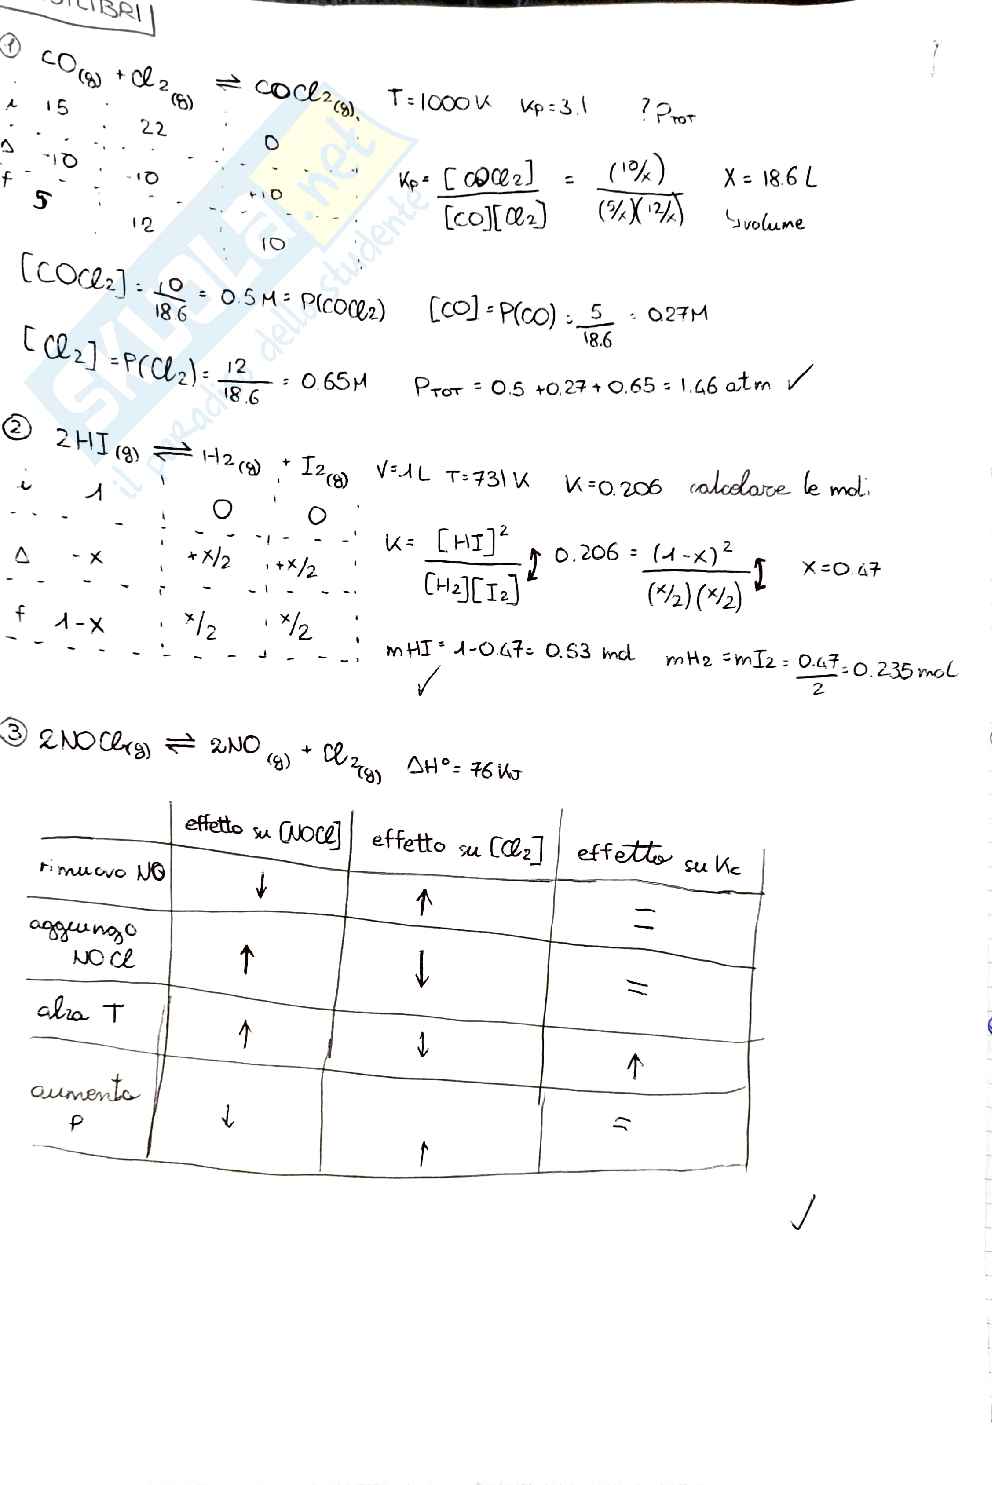 ① CO(g) + Cl2(g) ⇌ COCl2(g) T=1000K Kp=3.1 ? PTOT
i 15 22 0
Δ -10 -10 +10
f 5 12 10
Kp = [COCl2] / [CO][Cl2] = (10/x) / (5/x)(12/x) X = 18.6 L
↳volume
[COCl2] = 10/18.6 = 0.5M = P(COCl2) [CO] = P(CO) = 5/18.6 = 0.27M
[Cl2] = P(Cl2) = 12/18.6 = 0.65M PTOT = 0.5 + 0.27 + 0.65 = 1.46 atm ✓
② 2HI(g) ⇌ H2(g) + I2(g) V=1L T=731K K=0.206 calcolare le mol.
i 1 0 0
Δ -x +x/2 +x/2
f 1-x x/2 x/2
K = [HI]² / [H2][I2] ↕ 0.206 = (1-x)² / (x/2)(x/2) ↕ X=0.47
mHI = 1-0.47 = 0.53 mol mH2 = mI2 = 0.47/2 = 0.235 mol
✓
③ 2NOCl(g) ⇌ 2NO(g) + Cl2(g) ΔH° = 76 KJ
effetto su [NOCl] effetto su [Cl2] effetto su Kc
rimuovo NO ↓ ↑ =
aggiungo NOCl ↑ ↓ =
alza T ↑ ↓ ↑
aumenta P ↓ ↑ =
✓
SKUOLA.net
il paradiso dello studente